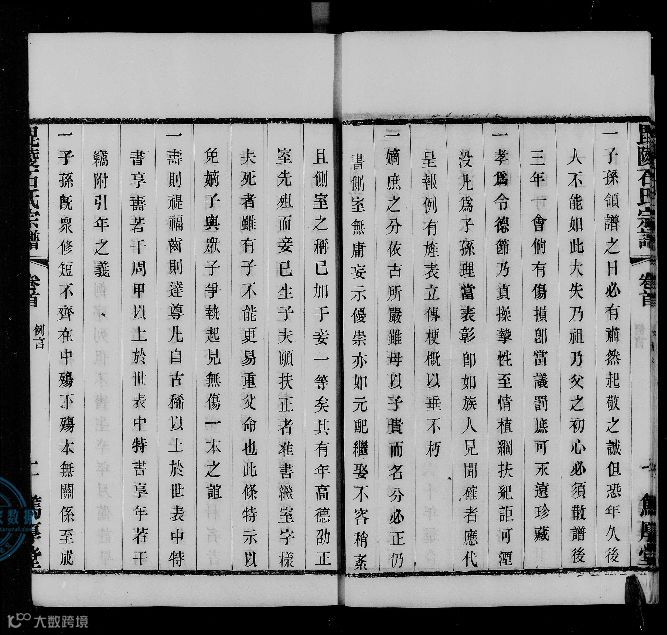 毘陵石氏宗譜
卷首
一子孫領譜之日必有肅然起敬之誠但恐年久後
人不能如此大失乃祖乃父之初心必須散譜後
三年一會倘有傷損卽當議罰庶可永遠珍藏
一孝爲令德節乃貞操摯性至情植綱扶紀詎可湮
没凡爲子孫理當表彰卽如族人見聞確者應代
呈報例有旌表立傳梗概以垂不朽
一嫡庶之分依古所嚴雖母以子貴而名分必正仍
書側室無庸妄示優崇亦如元配繼娶不容稍紊
且側室之稱已加于妾一等矣其有年高德劭正
室先殂而妾已生子夫願扶正者准書繼室字樣
夫死者雖有子不能更易重父命也此條特示以
免嫡子與衆子爭執起見無傷一本之誼
一壽則祿福齒則達尊凡自古稀以上於世表中特
書享壽若干周甲以上於世表中特書享年若干
竊附引年之義
一子孫旣衆修短不齊在中殤下殤本無關係至成
毘陵石氏宗譜
卷首
例言
篤厚堂
大數跨境